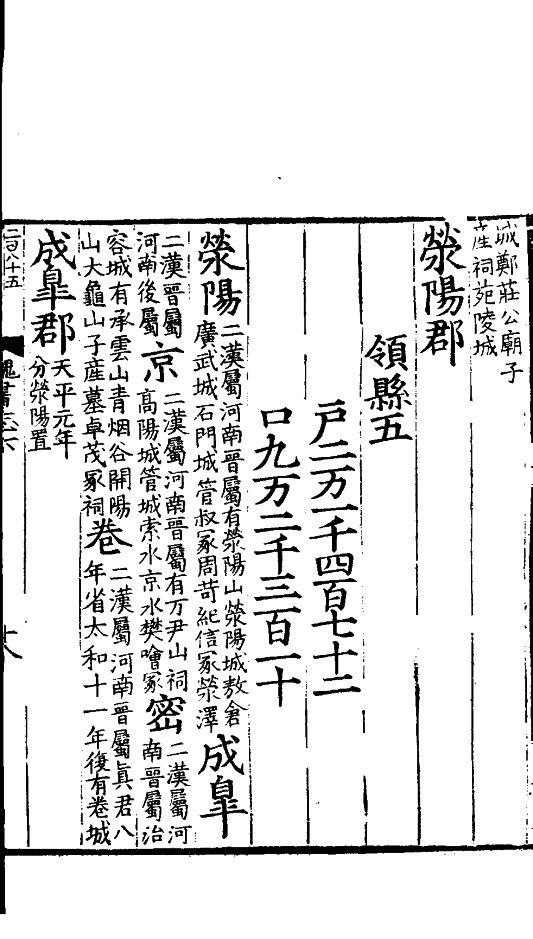 城鄭莊公廟子
産祠苑陵城
滎陽郡
領縣五
戸二万一千四百七十二
口九万二千三百一十
滎陽二漢屬河南晉屬有滎陽山滎陽城敖倉
廣武城石門城管叔冢周苛紀信冢滎澤成臯
二漢晉屬
河南後屬京二漢屬河南晉屬有万尹山祠
高陽城管城索水京水樊噲冢密二漢屬河
南晉屬治
容城有承雲山青烟谷開陽
山大龜山子産墓卓茂冢祠卷二漢屬河南晉屬眞君八
年省太和十一年復有卷城
成臯郡天平元年
分滎陽置
二百八十五
魏書志六
十八